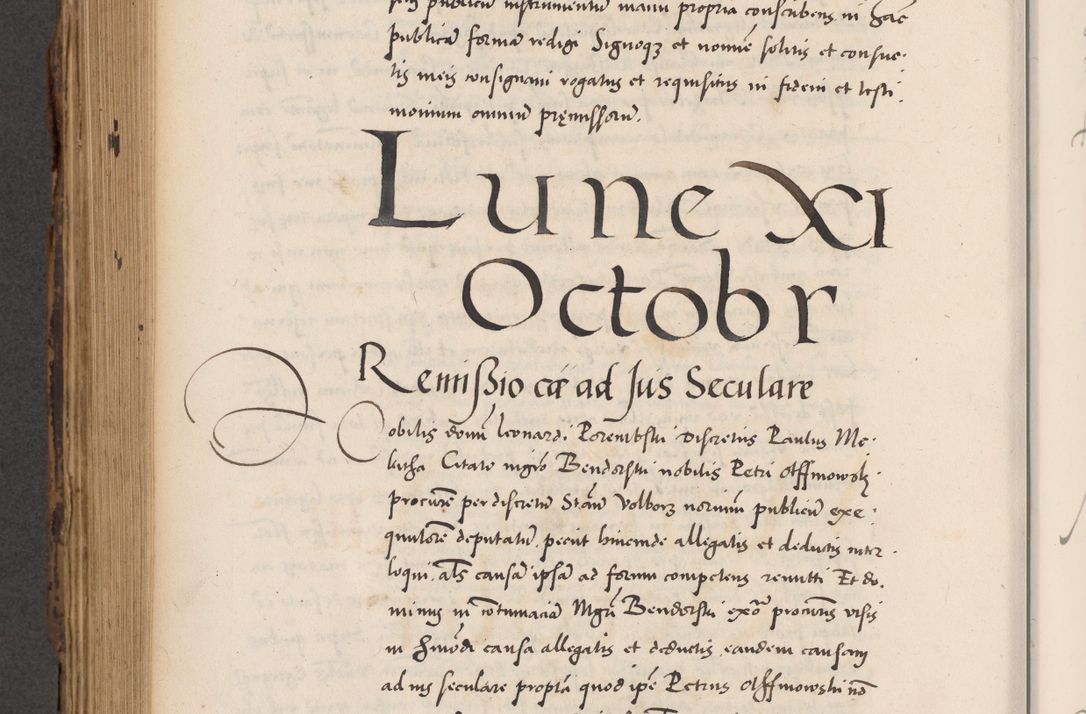 publicu instrumentu manu propria conscribens in hac
publica forma redigi Signoqz et nomie solitis et consue-
tis meis consignavi rogatus et requisitus in fidem et testi
monium omniu premissoru.
Lune XI
Octobr
Remissio cae ad Jus Seculare
Nobilis domi leonardi Porembski discretus Paulus Me-
Citato mgro Bendorski nobilis Petri Offmowsky
procure per discretu Stan Volborz norium publicu exe-
qutore deputatu petiit hincinde allegatis et deductis inter
loqui, als causa ipsa ad forum competens remitti Et do-
minus in cotumacia Mgri Bendorski exo procuris visis
in hmodi causa allegatis et deductis eandem causam
ad ius seculare propta quod ipe Petrus Offmowski no